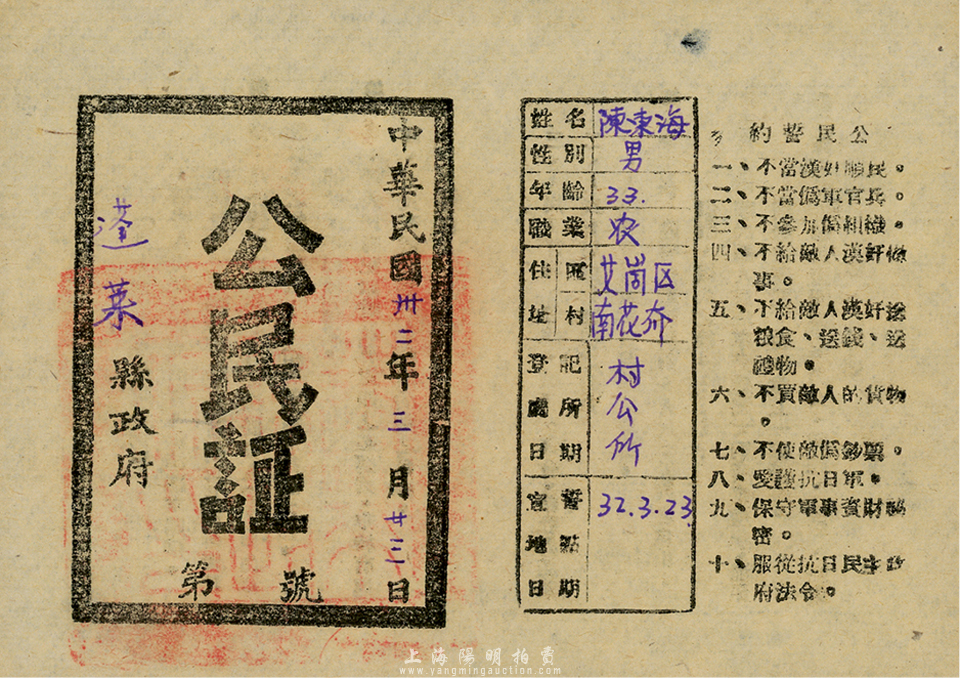 中華民國卅二年三月廿三日
公民証
蓬萊縣政府
第 號
姓名 陳東海
性別 男
年齡 33.
職業 农
住址 區 艾崮区
村 南花夼
登記處所日期 村公所
宣誓地點日期 32.3.23
公民誓約
一、不當漢奸順民。
二、不當偽軍官兵。
三、不參加偽組織。
四、不給敵人漢奸做
事。
五、不給敵人漢奸送
粮食、送錢、送
禮物。
六、不買敵人的貨物
。
七、不使敵偽鈔票。
八、愛護抗日軍。
九、保守軍事資財秘
密。
十、服從抗日民主政
府法令。
上海陽明拍賣
www.yangmingauction.com